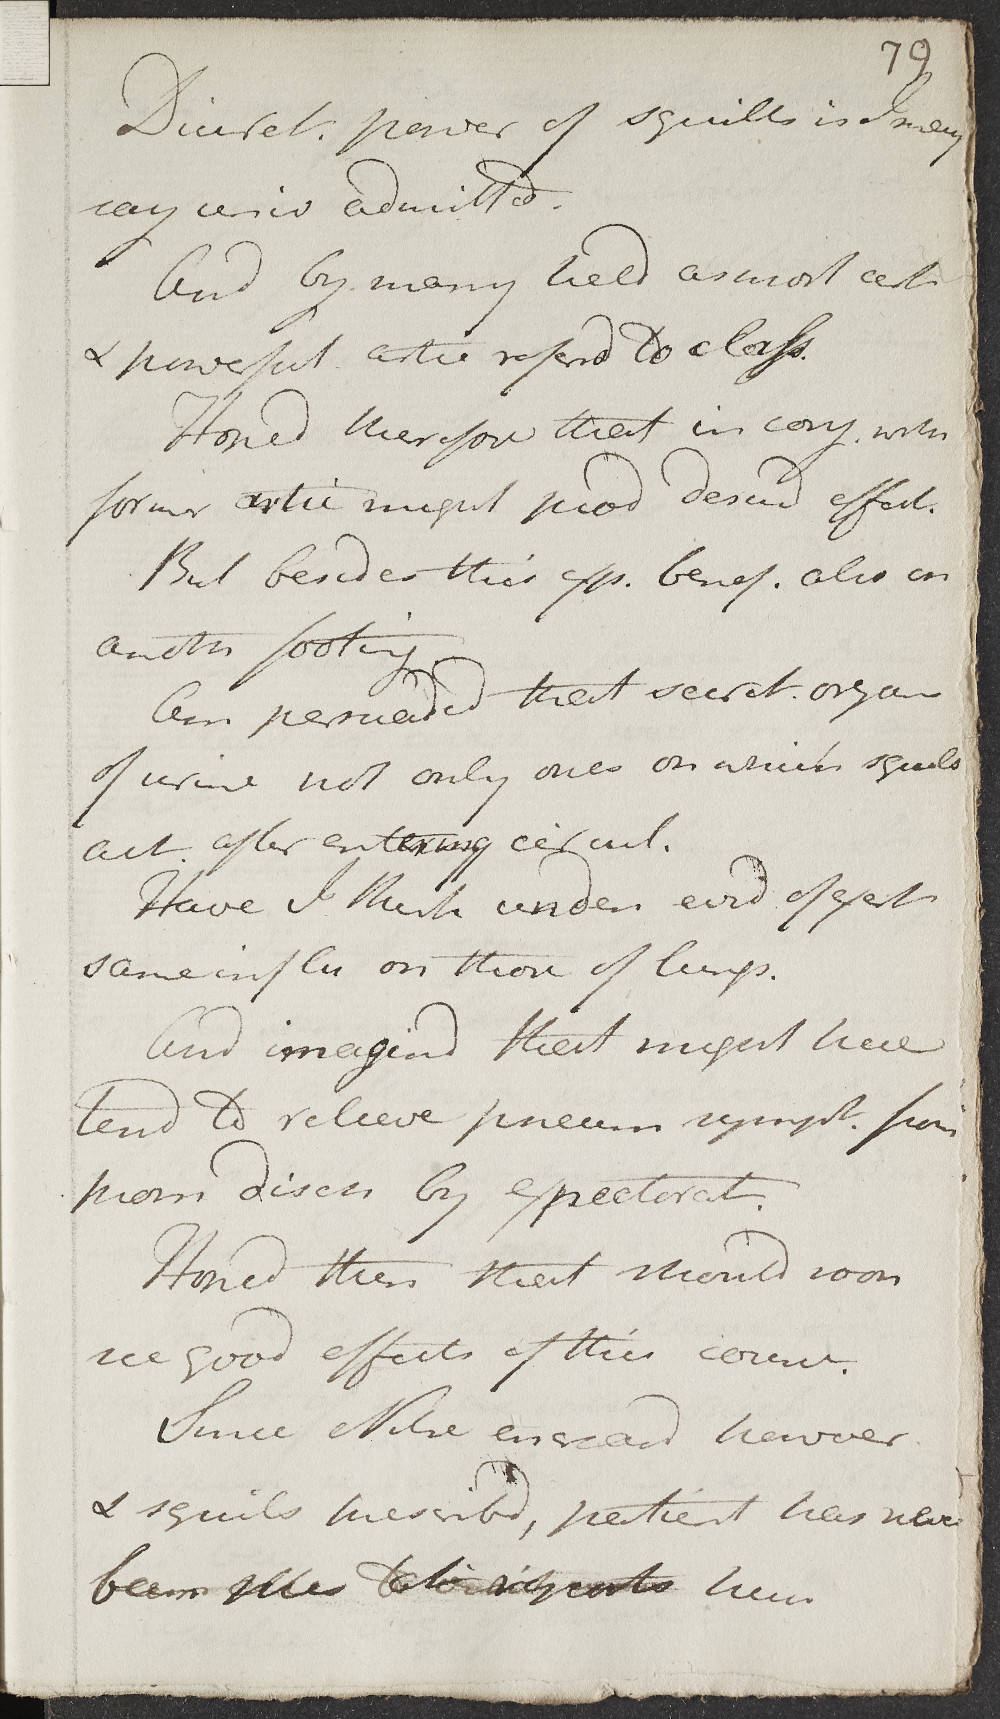 79
Diuret. power of squills is I may
say univ admitted.
And by many held as most cert
& powerful artic referd to class.
Hoped therefore that in conj. with
former artic might prod desird effect.
But besides this exp. benef. also on
anothr footing
Am persuaded that secret. organ
of urine not only ones on which squils
act. after entering circul.
Have I think unden evid of exert
same influ on those of lungs.
And imagind that might here
tend to relieve pneum sympt. from
prom disch by expectorat.
Hoped then that should soon
see good effects of this course.
Since Nitre encreasd however
& squils prescribd, patient has never
been